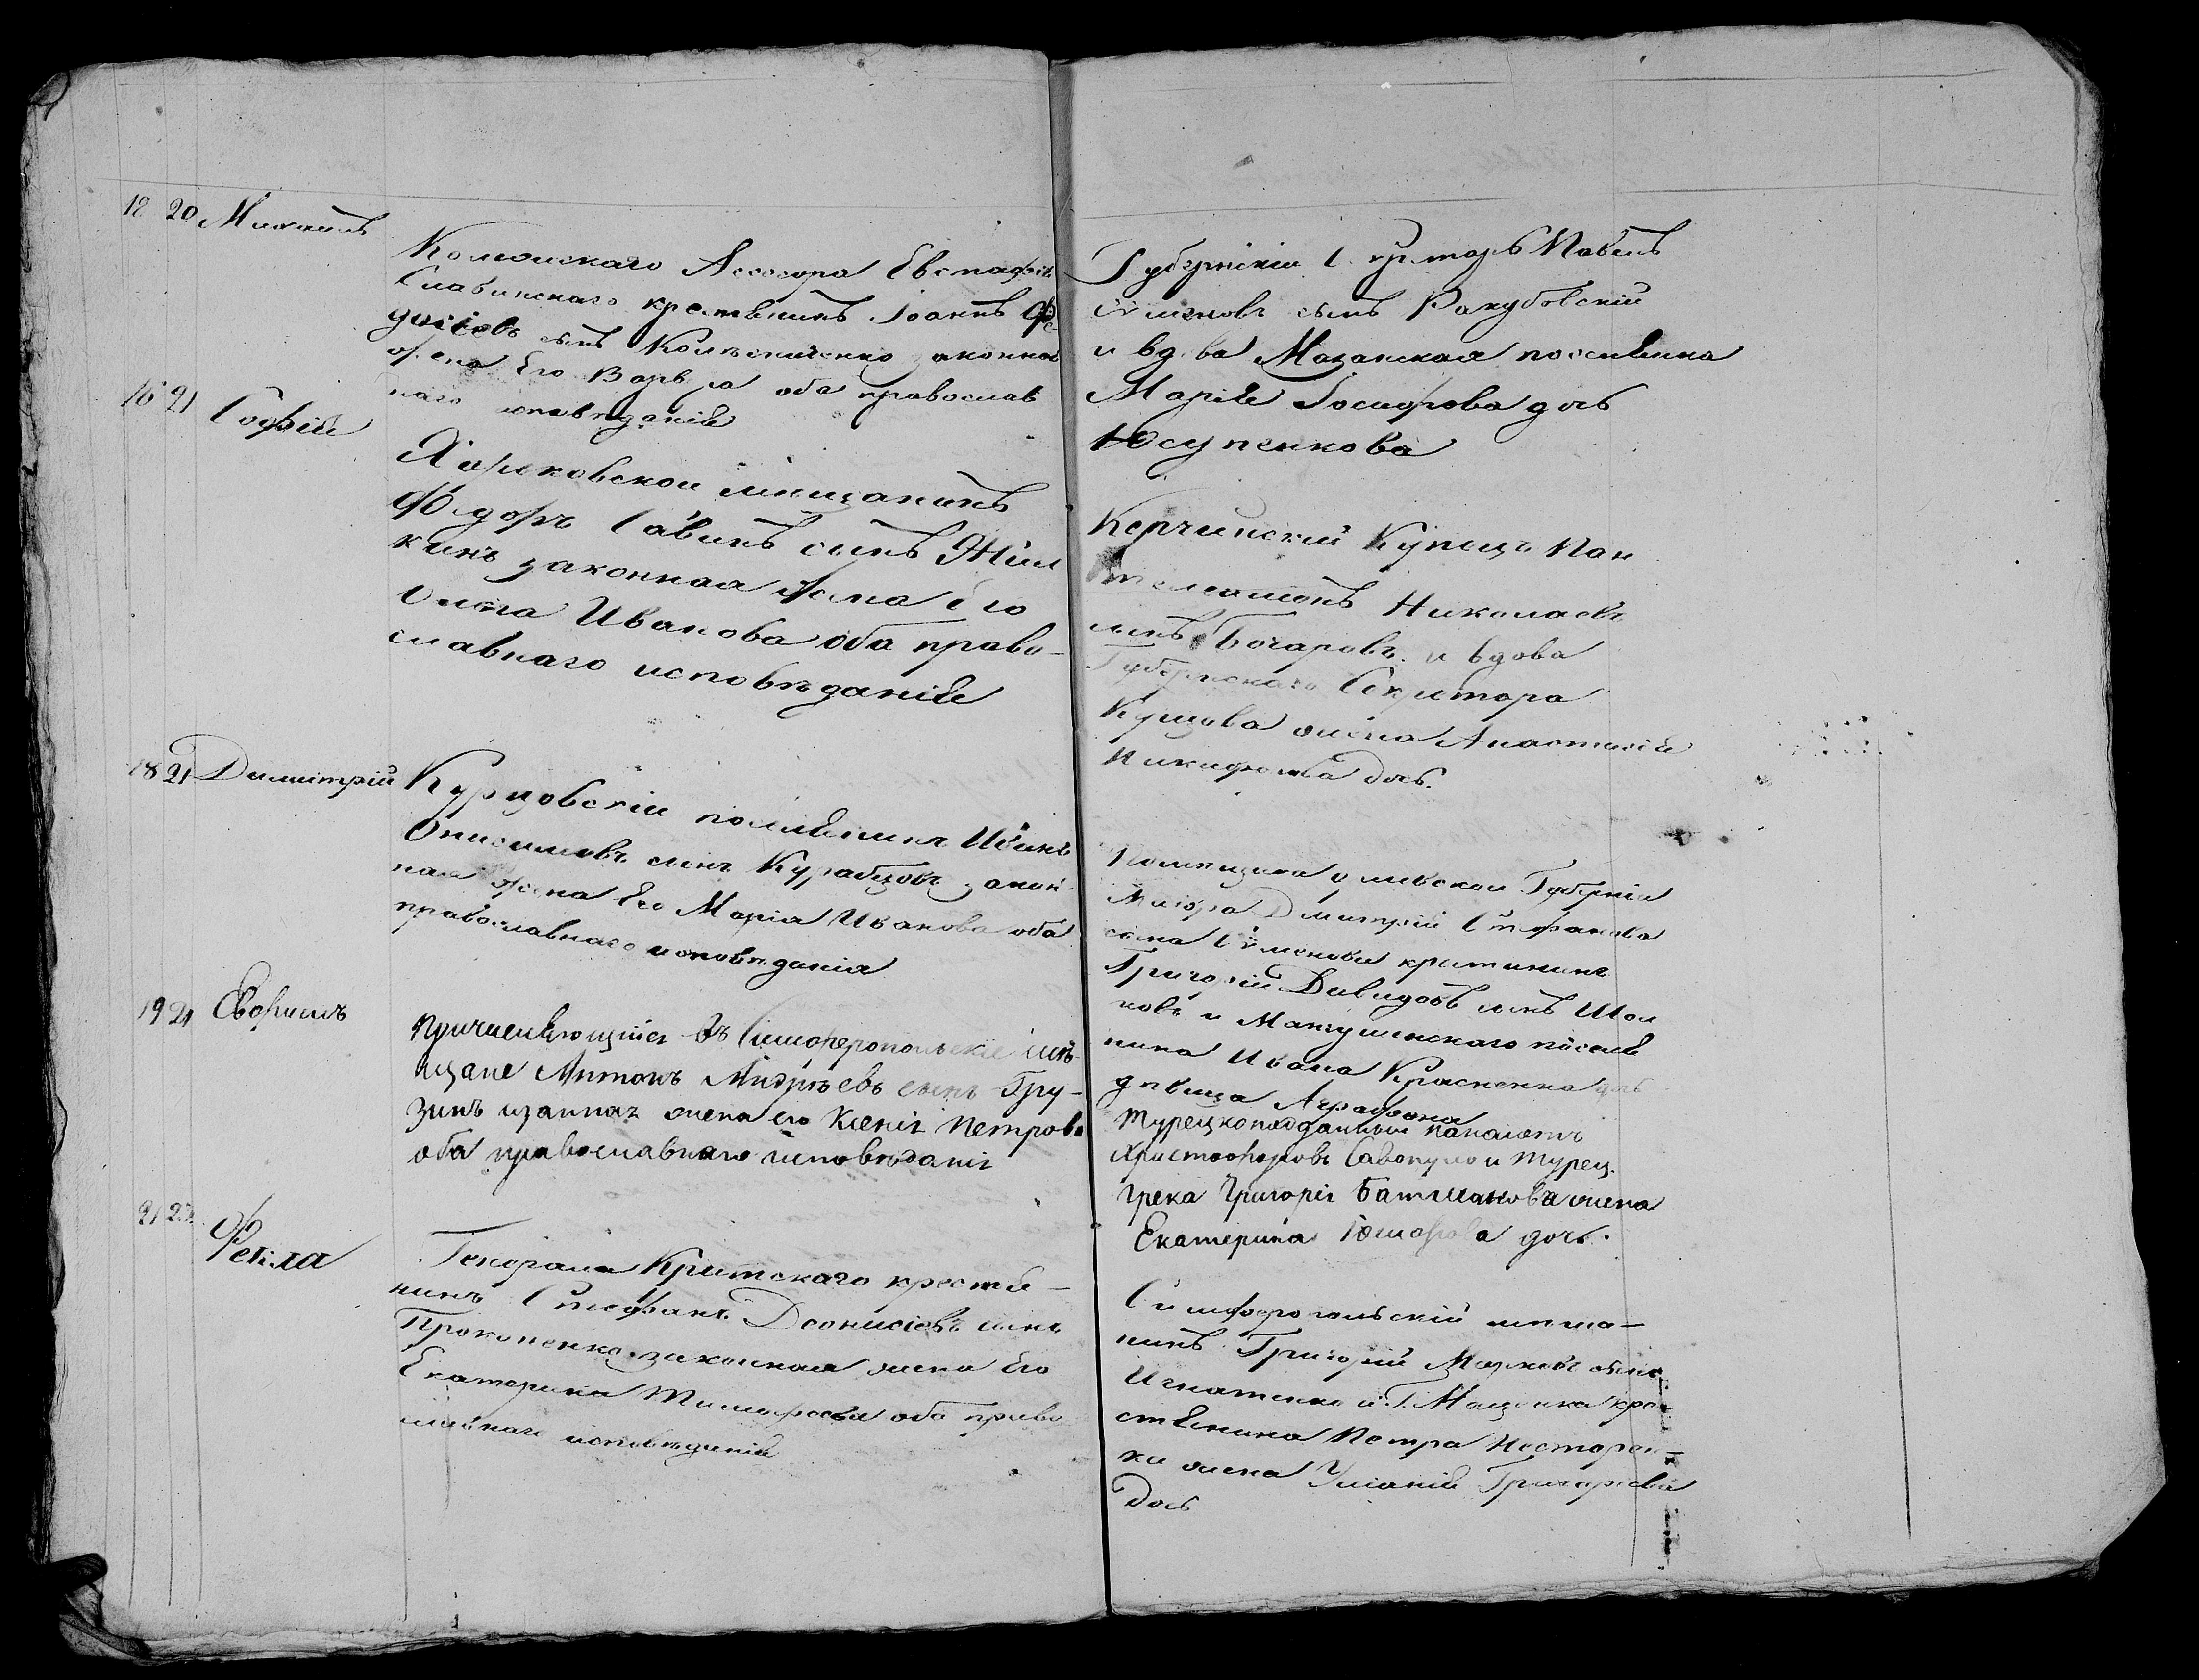 18 20 Михаилъ
Колежскаго Ассесора Евстафія
Славинскаго крестьянинъ Іоаннъ Фе-
досіевъ сынъ Колесниченко законная
жена Его Варвара оба православ
наго исповѣданія
16 21 Софія
Харьковской мещанинъ
Федоръ Савинъ сынъ Жил
кинъ законная жена Его
Иванова оба право-
славнаго исповѣданія
18 21 Димитрій
Курцовскій поселянинъ Иванъ
Онисимовъ сынъ Курабцовъ закон-
ная жена Его Марія Иванова оба
православнаго исповѣданія
19 21
Причисляющійся въ Симферопольскіе мѣ-
щане Антонъ Андрѣевъ сынъ Гру-
зинъ жена его Ксенія Петрова
оба православнаго исповѣданія
21 22 Фекла
Генерала Критскаго крестья-
нинъ Стефанъ Деонисіевъ сынъ
Прокопенко законная жена Его
Екатерина Тимофеева оба право
славнаго исповѣданія
Губернскій Секретарь Павелъ
Семеновъ сынъ Ракубовскій
и вдова Мазанская поселянка
Марія Іосифова дочь
Юсупенкова
Керчинскій Купецъ Пан
телеимонъ Николаевъ
сынъ Бочаровъ и вдова
Губернскаго Секретара
жена Анастасія
Никифорова дочь.
Помещика Губерніи
Маіора Димитрія Стефанова
сына Семенова крестьянинъ
Григорій Давидовъ сынъ Шол
ковъ и Мангушскаго поселя
нина Ивана Красненка дочь
девица Аграфена
Турецкоподданный Панаіотъ
Христофоровъ Савопуло и турец.
грека Григорія Батманова жена
Екатерина дочь.
Симферопольскій меща-
нинъ Григорій Марковъ сынъ
Игнатенко и Г. Мащенка кре-
стьянина Петра Нестерен-
ки жена Уліанія Григорьева
дочь